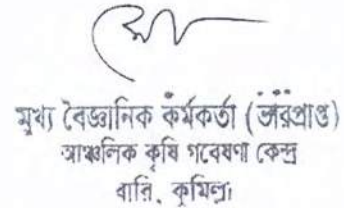 মুখ্য বৈজ্ঞানিক কর্মকর্তা (ভারপ্রাপ্ত)
আঞ্চলিক কৃষি গবেষণা কেন্দ্র
বারি, কুমিল্লা